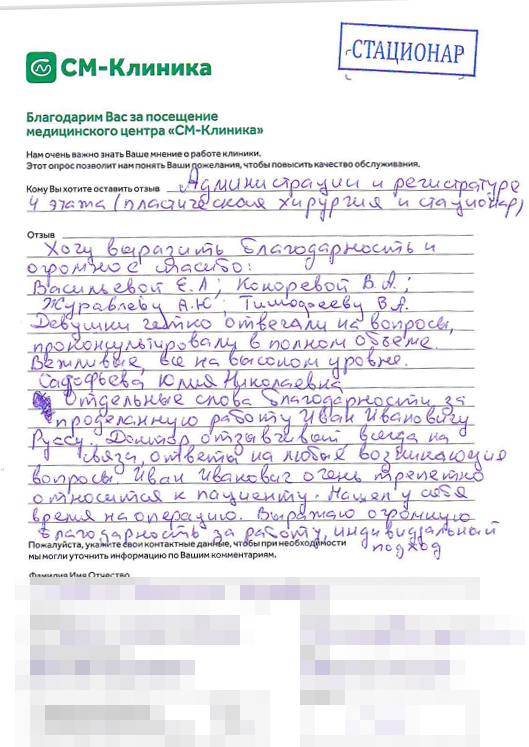 СТАЦИОНАР
СМ-Клиника
Благодарим Вас за посещение
медицинского центра «СМ-Клиника»
Нам очень важно знать Ваше мнение о работе клиники.
Этот опрос позволит нам понять Ваши пожелания, чтобы повысить качество обслуживания.
Кому Вы хотите оставить отзыв Администрации и регистратуре
4 этажа (пластическая хирургия и стационар)
Отзыв
Хочу выразить благодарность и
огромное спасибо:
Васильевой Е.Л; Коноревой В.А;
Журавлеву А.Ю; Тимофееву В.А.
Девушки четко отвечали на вопросы,
проконсультировали в полном объеме.
Вежливые, все на высоком уровне.
Садофьева Юлия Николаевна
Отдельные слова благодарности за
проделанную работу Иван Ивановичу
Руссу. Доктор отзывчивый всегда на
связи, ответы на любые возникающие
вопросы. Иван Иванович очень трепетно
относится к пациенту. Нашел у себя
время на операцию. Выражаю огромную
благодарность за работу, индивидуальный
подход
Пожалуйста, укажите свои контактные данные, чтобы при необходимости
мы могли уточнить информацию по Вашим комментариям.
Фамилия Имя Отчество